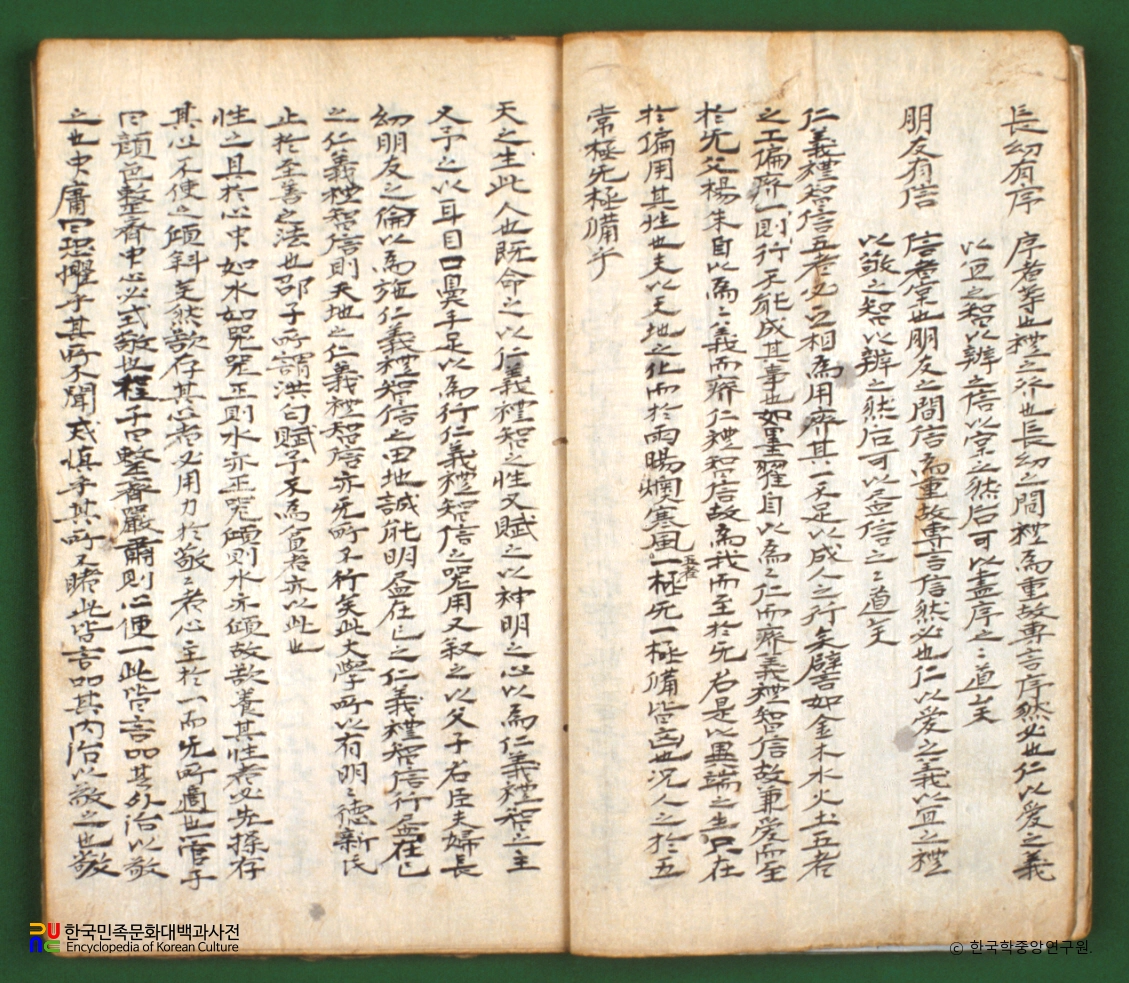 長幼有序 序者等也禮之分也長幼之間禮爲重故專言序然必也仁以爱之義
以宜之智以辨之信以宲之然后可以盡序之〻道矣
朋友有信 信者宲也朋友之間信爲重故專言信然必也仁以爱之義以宜之禮
以敬之智以辨之然后可以盡信之〻道矣
仁義禮智信五者必互相爲用廢其一不足以成人之行矣譬如金木水火土五者
之工偏廢一則行不能成其事也如墨翟自以爲〻仁而廢義禮智信故兼爱而至
於无父楊朱自以爲〻義而廢仁禮智信故爲我而至於无君是以異端之生只在
於偏用其性也夫以天地之化而於雨暘燠寒風五者一極无一極備皆凶也况人之於五
常極无極備乎
天之生此人也既命之以仁義禮智之性又賦之以神明之心以爲仁義禮智之主
又予之以耳目口鼻手足以爲行仁義禮智信之器用又叙之以父子君臣夫婦長
幼朋友之倫以爲施仁義禮智信之田地誠能明盡在己之仁義禮智信行盡在己
之仁義禮智信則天地之仁義禮智信亦无所不行矣此大學所以有明〻德新民
止於至善之法也邵子所謂洪匀賦予不爲貧者亦以此也
性之具於心中如水如器器正則水亦正器傾則水亦傾故欲養其性者必先操存
其心不使之傾斜矣然欲存其心者必用力於敬〻者心主於一而无所適也管子
曰顔色整齊中心必式敬也程子曰整齊嚴肅則心便一此皆言品其外治以敬
之也中庸曰恐懼乎其所不聞戒慎乎其所不睹此皆言品其內治以敬之也敬
한국민족문화대백과사전
Encyclopedia of Korean Culture
© 한국학중앙연구원.